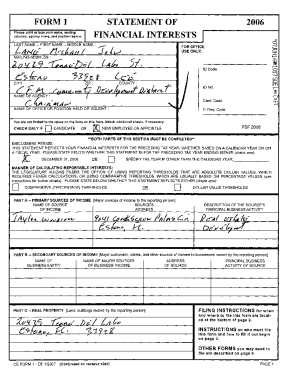 FORM 1
STATEMENT OF
2006
Please print or type your name, mailing
address, agency name, and position below:
FINANCIAL INTERESTS
LAST NAME -- FIRST NAME -- MIDDLE NAME:
Michael John
MAILING ADDRESS:
FOR OFFICE
USE ONLY:
20429 Del Lago St.
Estero 33928 Lee
COUNTY
ID Code
CFM Community Development District
NAME OF AGENCY:
ID No.
Chairman
NAME OF OFFICE OR POSITION HELD OR SOUGHT:
Conf. Code
P. Req. Code
You are not limited to the space on the lines on this form. Attach additional sheets, if necessary.
CHECK ONLY IF CANDIDATE OR X NEW EMPLOYEE OR APPOINTEE
PDF 2006
**BOTH PARTS OF THIS SECTION MUST BE COMPLETED**
DISCLOSURE PERIOD:
THIS STATEMENT REFLECTS YOUR FINANCIAL INTERESTS FOR THE PRECEDING TAX YEAR, WHETHER BASED ON A CALENDAR YEAR OR ON
A FISCAL YEAR. PLEASE STATE BELOW WHETHER THIS STATEMENT IS FOR THE PRECEDING TAX YEAR ENDING EITHER (check one):
X DECEMBER 31, 2006 OR SPECIFY TAX YEAR IF OTHER THAN THE CALENDAR YEAR:
MANNER OF CALCULATING REPORTABLE INTERESTS:
THE LEGISLATURE ALLOWS FILERS THE OPTION OF USING REPORTING THRESHOLDS THAT ARE ABSOLUTE DOLLAR VALUES, WHICH
REQUIRES FEWER CALCULATIONS, OR USING COMPARATIVE THRESHOLDS, WHICH ARE USUALLY BASED ON PERCENTAGE VALUES (see
instructions for further details). PLEASE STATE BELOW WHETHER THIS STATEMENT REFLECTS EITHER (check one):
COMPARATIVE (PERCENTAGE) THRESHOLDS OR DOLLAR VALUE THRESHOLDS
PART A -- PRIMARY SOURCES OF INCOME [Major sources of income to the reporting person]
NAME OF SOURCE
OF INCOME
SOURCE'S
ADDRESS
DESCRIPTION OF THE SOURCE'S
PRINCIPAL BUSINESS ACTIVITY
Taylor Woodrow
Real estate
Estero, Fl.
PART B -- SECONDARY SOURCES OF INCOME [Major customers, clients, and other sources of income to businesses owned by the reporting person]
NAME OF
BUSINESS ENTITY
NAME OF MAJOR SOURCES
OF BUSINESS' INCOME
ADDRESS
OF SOURCE
PRINCIPAL BUSINESS
ACTIVITY OF SOURCE
PART C -- REAL PROPERTY [Land, buildings owned by the reporting person]
20429 Del Lago
Estero, Fl. 33928
FILING INSTRUCTIONS for when
and where to file this form are located
at the bottom of page 2.
INSTRUCTIONS on who must file
this form and how to fill it out begin
on page 3.
OTHER FORMS you may need to
file are described on page 6.
CE FORM 1 - Eff. 1/2007 (Continued on reverse side)
PAGE 1